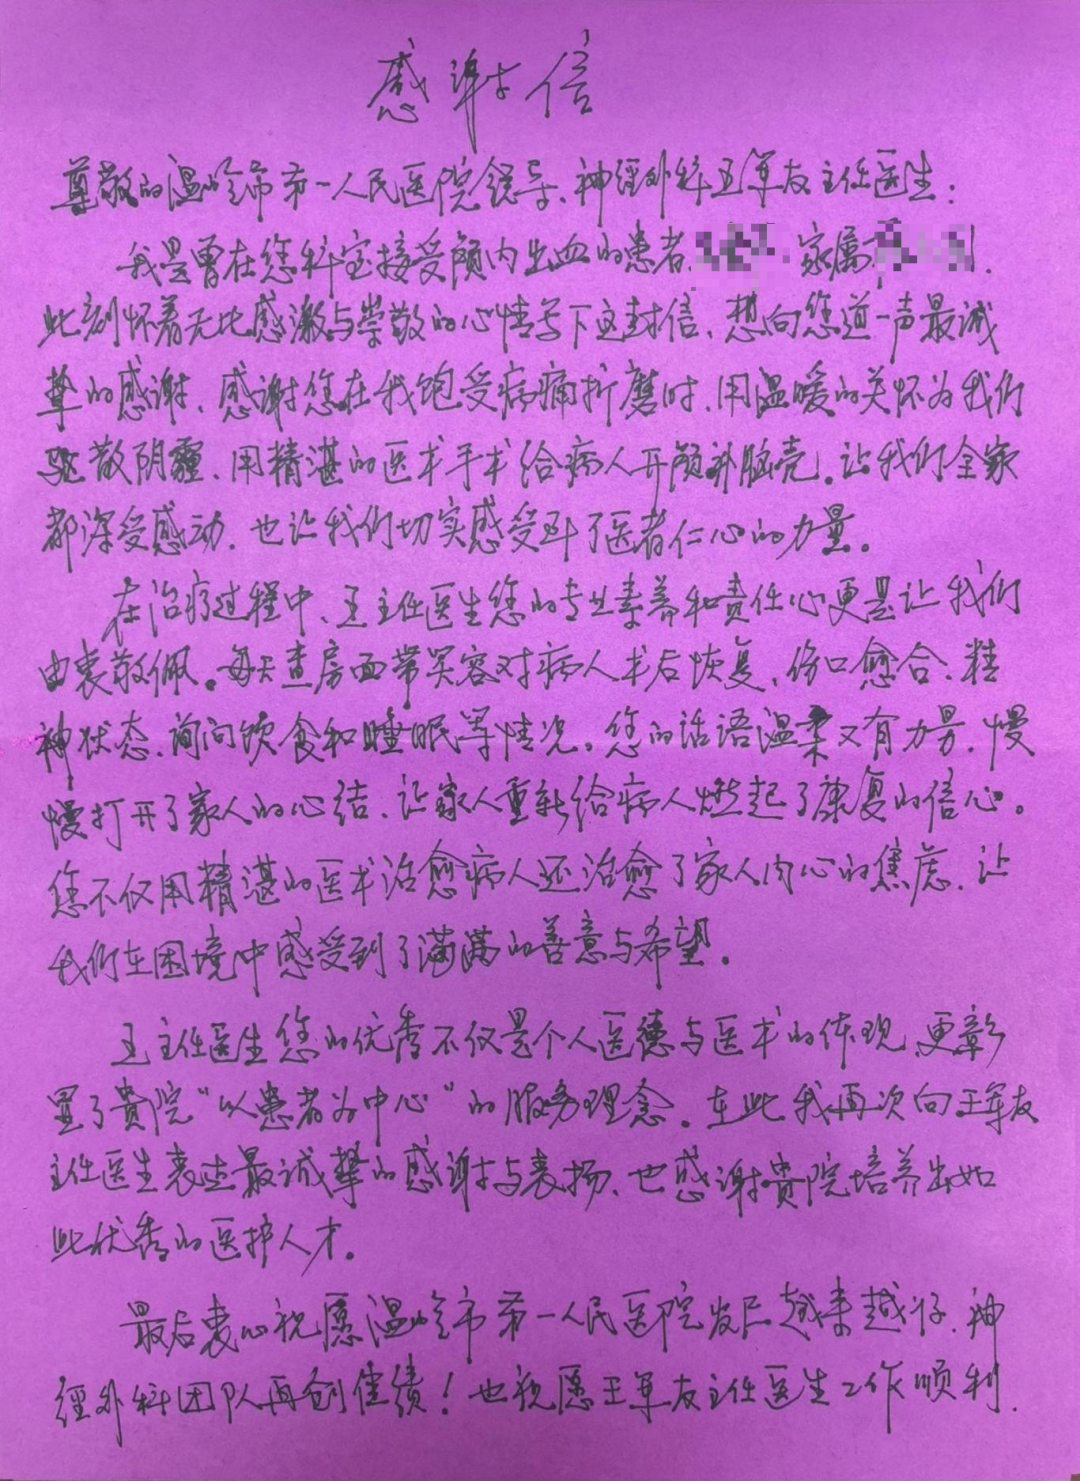 感谢信
尊敬的温岭市第一人民医院领导、神经外科王军友主任医生:
我是曾在您科室接受颅内出血的患者 家属
此刻怀着无比感激与崇敬的心情写下这封信、想向您道一声最诚
挚的感谢、感谢您在我饱受病痛折磨时、用温暖的关怀为我们
驱散阴霾、用精湛的医术手术给病人开颅补脑壳。让我们全家
都深受感动、也让我们切实感受到了医者仁心的力量。
在治疗过程中、王主任医生您的专业素养和责任心更是让我们
由衷敬佩。每天查房面带笑容对病人术后恢复、伤口愈合、精
神状态、询问饮食和睡眠等情况。您的话语温柔又有力量、慢
慢打开了家人的心结、让家人重新给病人燃起了康复的信心。
您不仅用精湛的医术治愈病人还治愈了家人内心的焦虑、让
我们在困境中感受到了满满的善意与希望。
王主任医生您的优秀不仅是个人医德与医术的体现、更彰
显了贵院“以患者为中心”的服务理念。在此我再次向王军友
主任医生表达最诚挚的感谢与表扬、也感谢贵院培养出如
此优秀的医护人才。
最后衷心祝愿温岭市第一人民医院发展越来越好、神
经外科团队再创佳绩!也祝愿王军友主任医生工作顺利、